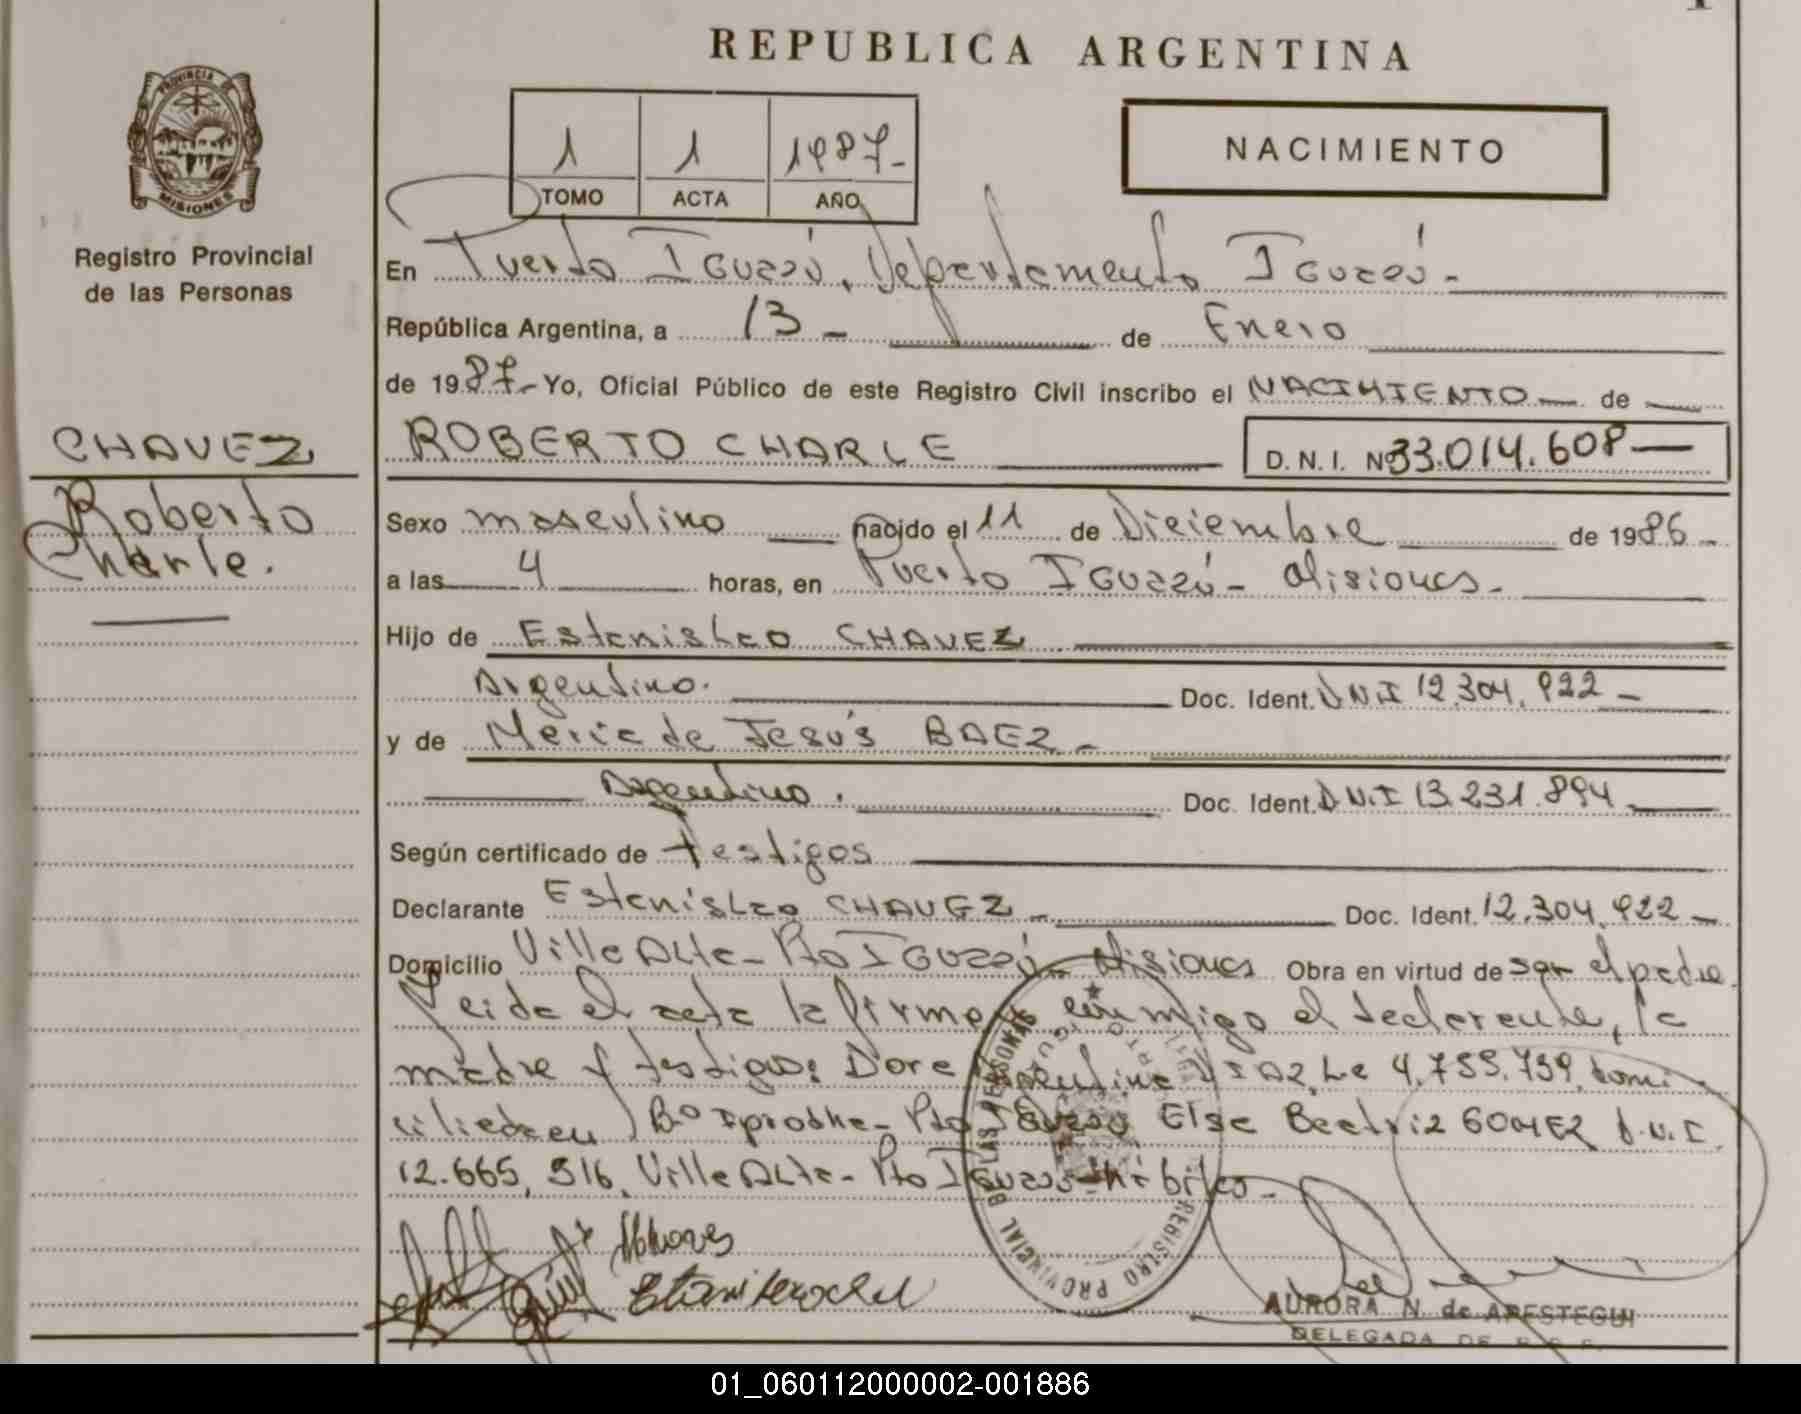 REPUBLICA ARGENTINA
PROVINCIA DE MISIONES
Registro Provincial
de las Personas
1 1 1987-
TOMO ACTA AÑO
NACIMIENTO
En Puerto Iguazú, Departamento Iguazú-
República Argentina, a 13- de Enero
de 1987- Yo, Oficial Público de este Registro Civil inscribo el NACIMIENTO de
CHAVEZ
Roberto
Charle.
ROBERTO CHARLE D.N.I. Nº 33.014.608
Sexo masculino nacido el 11 de Diciembre de 1986-
a las 4 horas, en Puerto Iguazú- Misiones-
Hijo de Estanislao CHAVEZ
Argentino. Doc. Ident. D.N.I 12.304.922-
y de Maria de Jesús BAEZ-
Argentina. Doc. Ident. D.N.I 13.231.894
Según certificado de testigos
Declarante Estanislao CHAVEZ- Doc. Ident. 12.304.922-
Domicilio Villa Alta- Pto Iguazú- Misiones Obra en virtud de ser el padre.
Leida el acta la firman conmigo el declarante, la
madre y testigos: Dora DIAZ, Le 4.755.759, domi-
ciliada en Bº Pto Iguazú Elsa Beatriz GOMEZ D.N.I.
12.665.516, Villa Alta- Pto Iguazú
REGISTRO PROVINCIAL DE LAS PERSONAS
AURORA N. de ARESTEGUI
DELEGADA DE
01_060112000002-001886